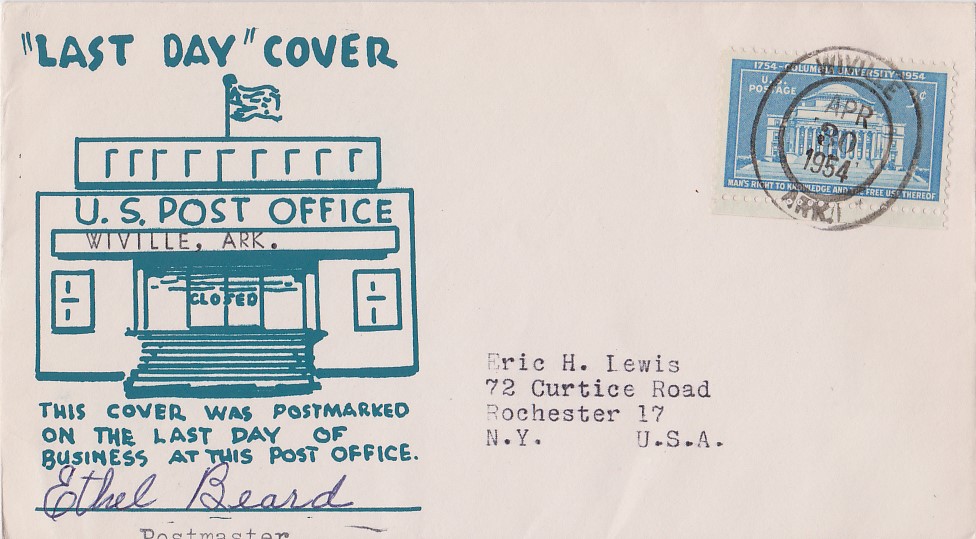 "LAST DAY" COVER
U.S. POST OFFICE
WIVILLE, ARK.
CLOSED
THIS COVER WAS POSTMARKED
ON THE LAST DAY OF
BUSINESS AT THIS POST OFFICE.
Ethel Beard
Postmaster
1754-COLUMBIA UNIVERSITY-1954
U.S. POSTAGE
3¢
MAN'S RIGHT TO KNOWLEDGE AND THE FREE USE THEREOF
WIVILLE
APR
30
1954
ARK.
Eric H. Lewis
72 Curtice Road
Rochester 17
N.Y. U.S.A.